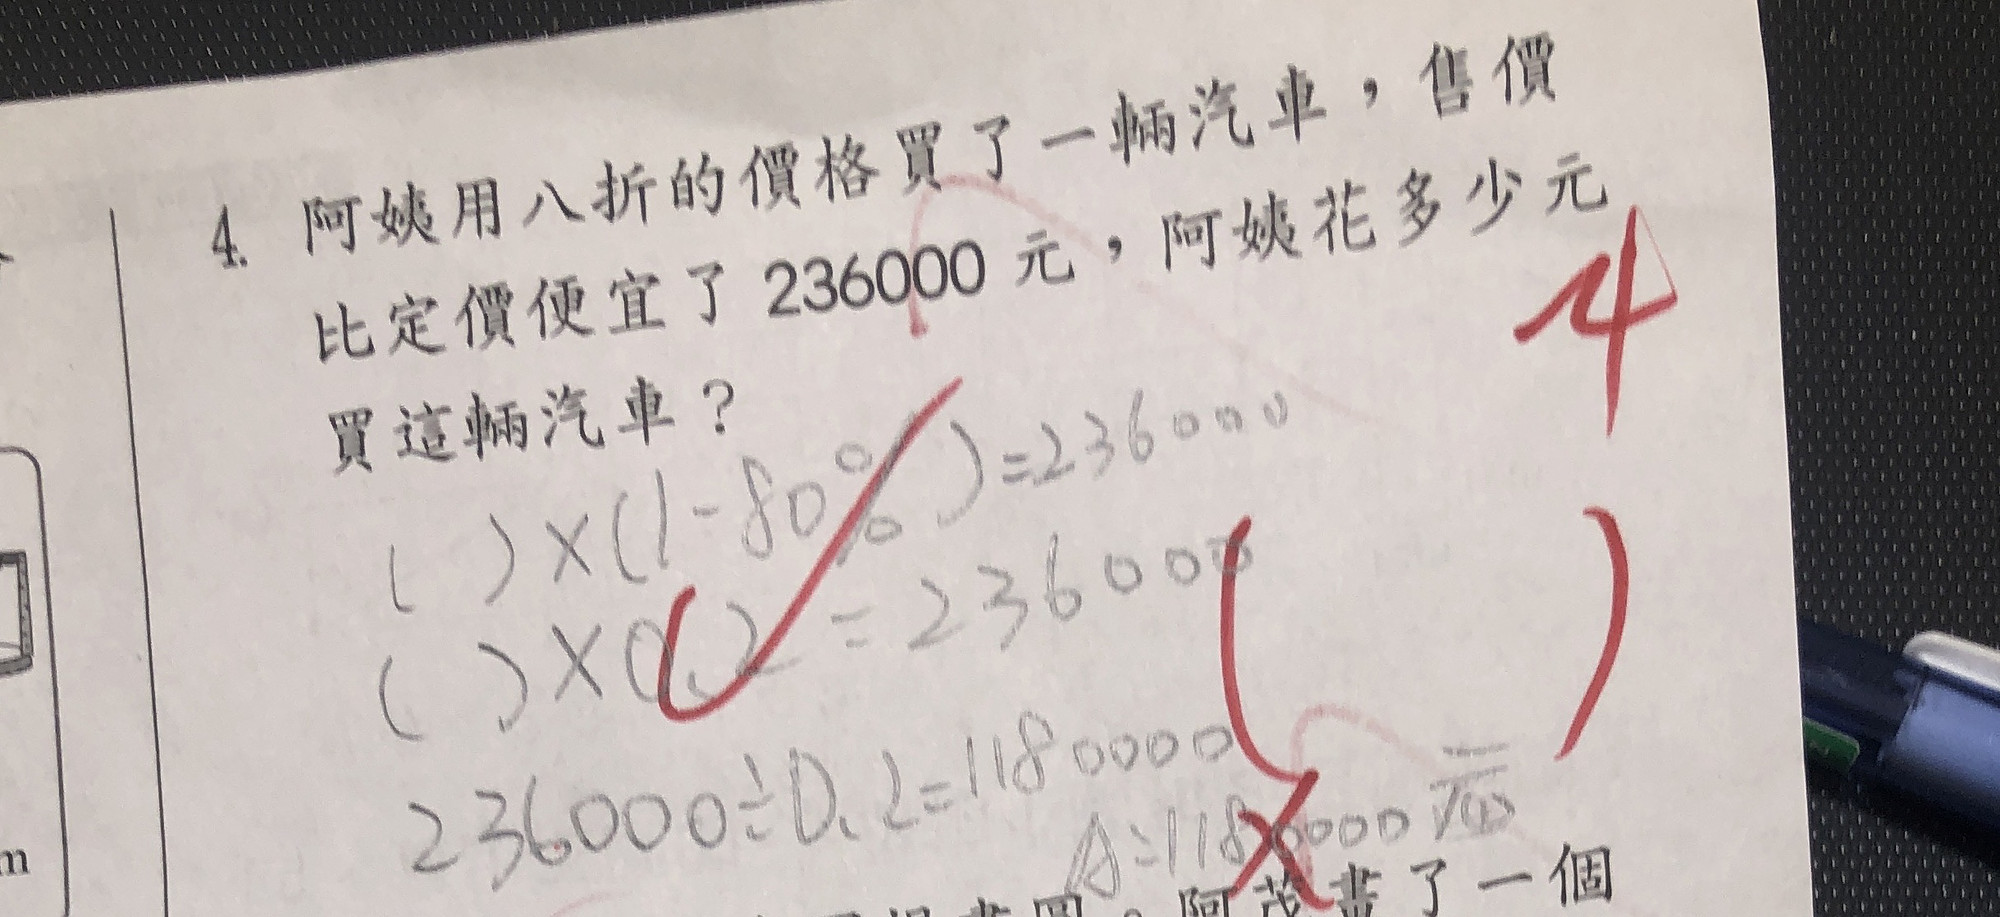 4. 阿姨用八折的價格買了一輛汽車，售價
比定價便宜了 236000 元，阿姨花多少元
買這輛汽車？
4
( )×(1-80%)=236000
( )×0.2=236000
( )
236000÷0.2=1180000
A:1180000元
m
阿茂畫了一個